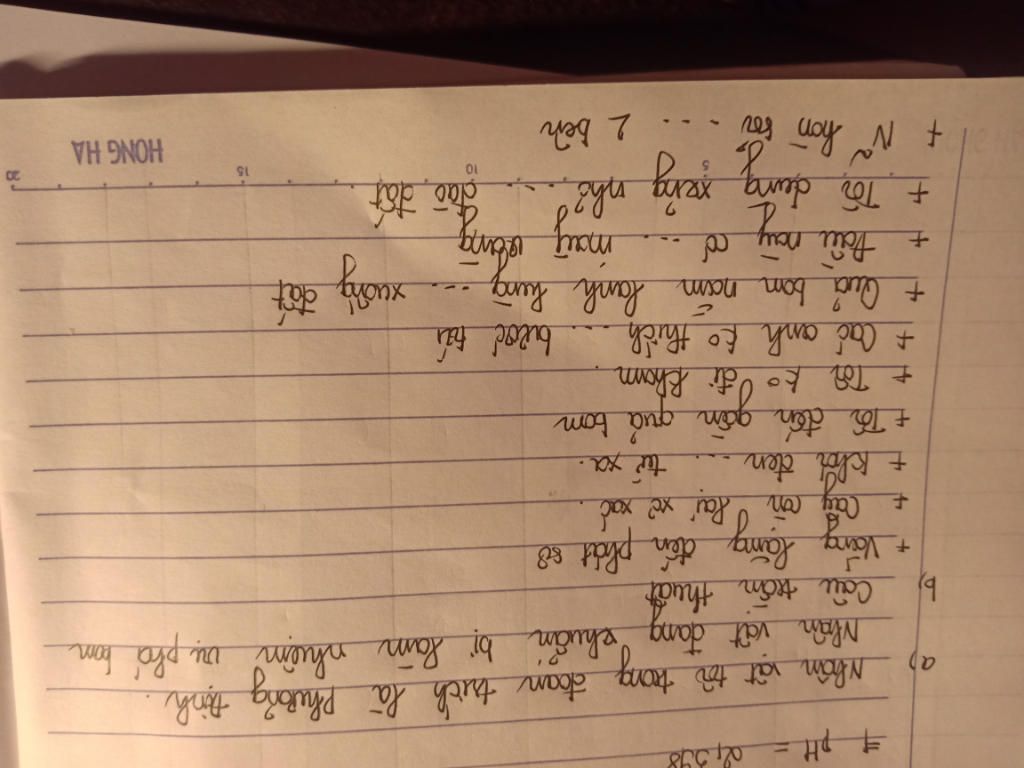 ⇒ pH = 2,398
a) Nhân vật tôi trong đoạn trích là Phương Định.
Nhân vật đang chuẩn bị làm nhiệm vụ phá bom
b) Câu trần thuật
+ Vắng lặng đến phát sợ
+ Cây còn lại xơ xác.
+ Khói đen ... từ xa.
+ Tôi đến gần quả bom
+ Tôi ko đi khom.
+ Các anh ko thích ... bước tới
+ Quả bom nằm lạnh lùng ... xuống đất
+ Đầu này có ... màu vàng
+ Tôi dùng xẻng nhỏ ... đào đất
+ N~ hòn sỏi .... 2 bên
5 10 15 20
HONG HA